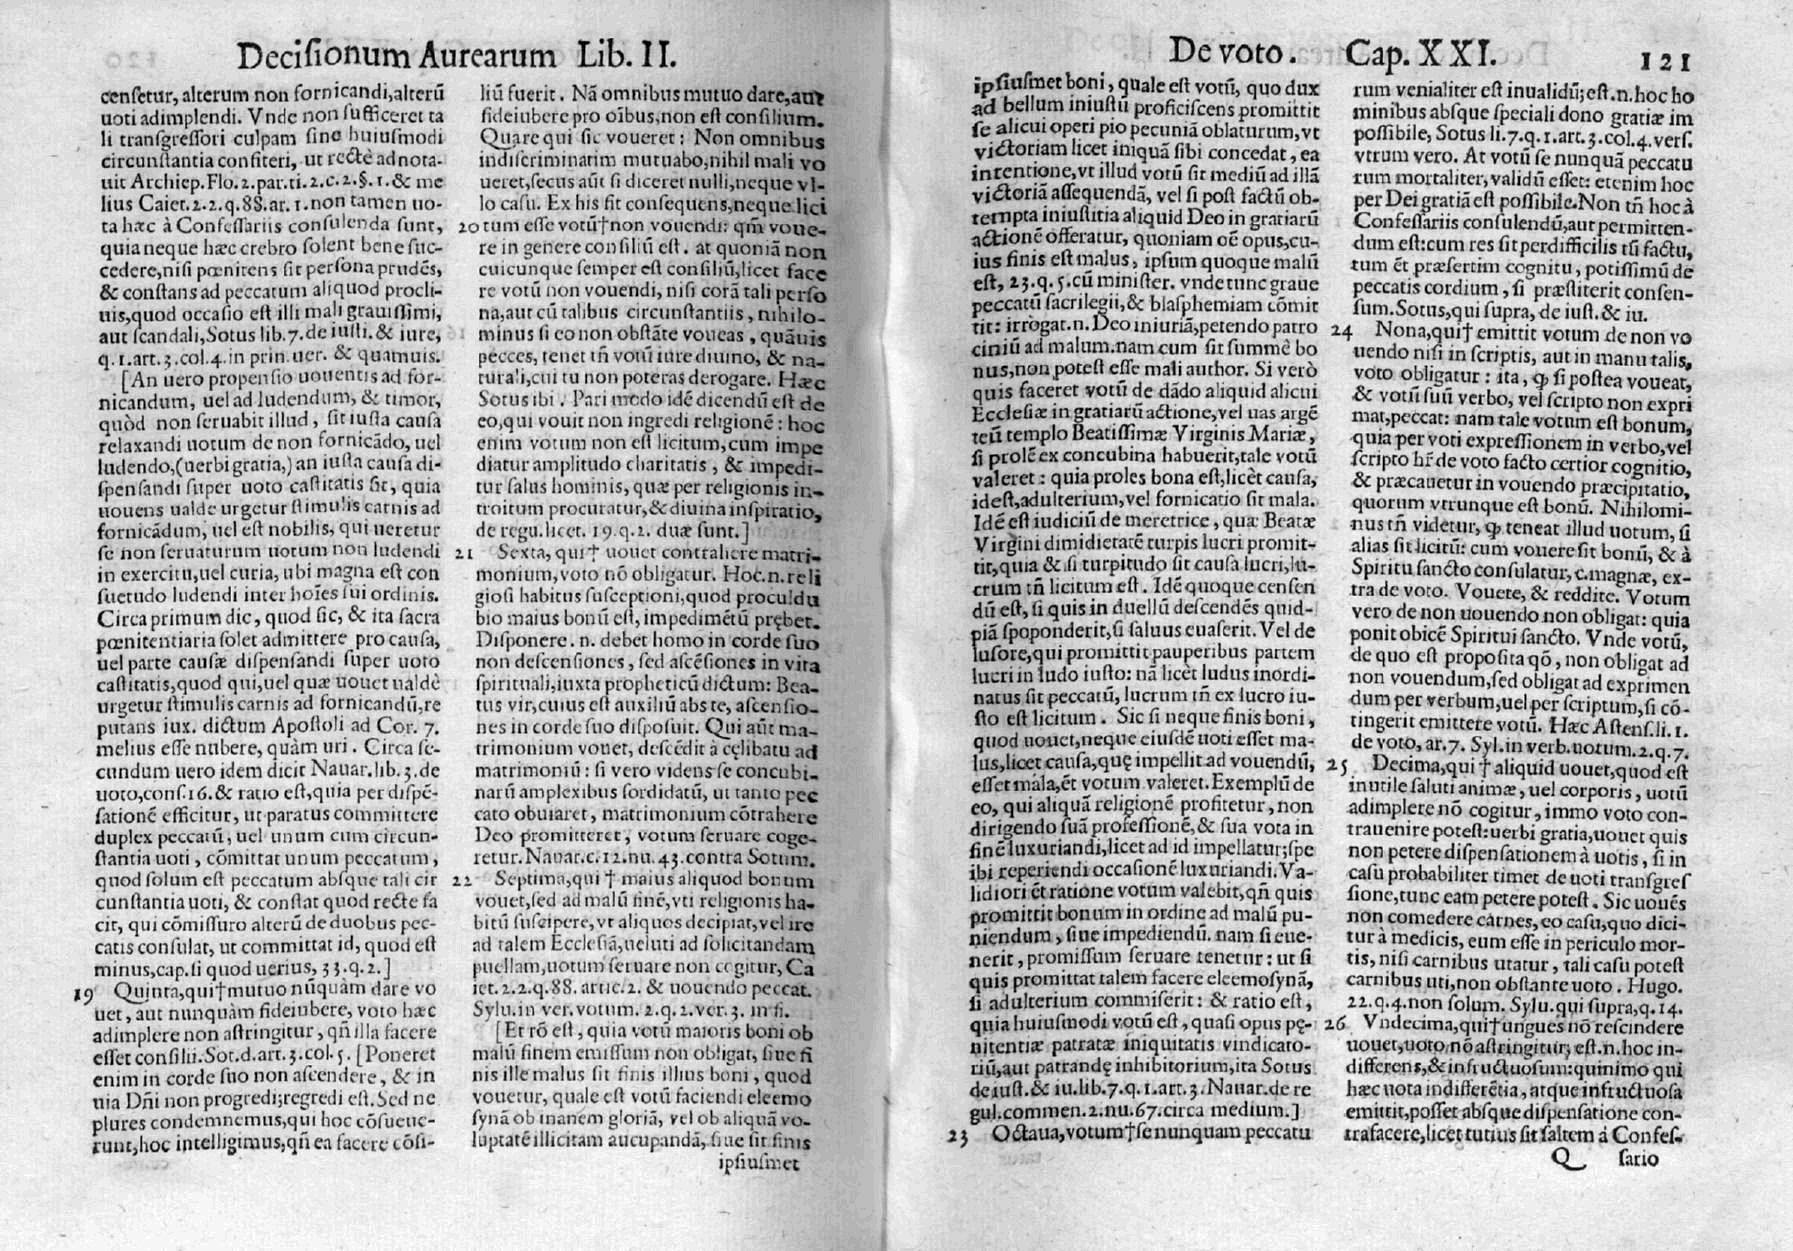 Decisionum Aurearum Lib. II.
censetur, alterum non fornicandi, alterũ
uoti adimplendi. Vnde non sufficeret ta
li transgressori culpam sine huiusmodi
circunstantia confiteri, ut rectè ad nota-
uit Archiep. Flo. 2. par. ti. 2. c. 2. §. 1. & me
lius Caiet. 2. 2. q. 88. ar. 1. non tamen uo-
ta hæc à Confessariis consulenda sunt,
quia neque hæc crebro solent bene suc-
cedere, nisi pœnitens sit persona prudẽs,
& constans ad peccatum aliquod procli-
uis, quod occasio est illi mali grauissimi,
aut scandali, Sotus lib. 7. de iusti. & iure,
q. 1. art. 3. col. 4. in prin. uer. & quamuis.
[An uero propensio uouentis ad for-
nicandum, uel ad ludendum, & timor,
quòd non seruabit illud, sit iusta causa
relaxandi uotum de non fornicãdo, uel
ludendo, (uerbi gratia,) an iusta causa di-
spensandi super uoto castitatis sit, quia
uouens ualde urgetur stimulis carnis ad
fornicãdum, uel est nobilis, qui ueretur
se non seruaturum uotum non ludendi
in exercitu, uel curia, ubi magna est con
suetudo ludendi inter hoĩes sui ordinis.
Circa primum dic, quod sic, & ita sacra
pœnitentiaria solet admittere pro causa,
uel parte causæ dispensandi super uoto
castitatis, quod qui, uel quæ uouet ualdè
urgetur stimulis carnis ad fornicandũ, re
putans iux. dictum Apostoli ad Cor. 7.
melius esse nubere, quàm uri. Circa se-
cundum uero idem dicit Nauar. lib. 3. de
uoto, cons. 16. & ratio est, quia per dispẽ-
sationẽ efficitur, ut paratus committere
duplex peccatũ, uel unum cum circun-
stantia uoti, cõmittat unum peccatum,
quod solum est peccatum absque tali cir
cunstantia uoti, & constat quod recte fa
cit, qui cõmissuro alterũ de duobus pec-
catis consulat, ut committat id, quod est
minus, cap. si quod uerius, 33. q. 2.]
19 Quinta, qui † mutuo nũquàm dare vo
uet, aut nunquàm fideiubere, voto hæc
adimplere non astringitur, qñ illa facere
esset consilii. Sot. d. art. 3. col. 5. [Poneret
enim in corde suo non ascendere, & in
uia Dñi non progredi; regredi est. Sed ne
plures condemnemus, qui hoc cõsueue-
runt, hoc intelligimus, qñ ea facere cõsi-
liũ fuerit. Nã omnibus mutuo dare, aut
fideiubere pro oĩbus, non est consilium.
Quare qui sic voueret: Non omnibus
indiscriminatim mutuabo, nihil mali vo
ueret, secus aũt si diceret nulli, neque vl-
lo casu. Ex his fit consequens, neque lici
20 tum esse votũ † non vouendi: qm̃ voue-
re in genere consiliũ est. at quoniã non
cuicunque semper est consiliũ, licet face
re votũ non vouendi, nisi corã tali perso
na, aut cũ talibus circunstantiis, nihilo-
minus si eo non obstãte voueas, quãuis
pecces, tenet tñ votũ iure diuino, & na-
turali, cui tu non poteras derogare. Hæc
Sotus ibi. Pari modo idẽ dicendũ est de
eo, qui vouit non ingredi religionẽ: hoc
enim votum non est licitum, cum impe
diatur amplitudo charitatis, & impedi-
tur salus hominis, quæ per religionis in-
troitum procuratur, & diuina inspiratio,
de regu. licet. 19. q. 2. duæ sunt.]
21 Sexta, qui † uouet contrahere matri-
monium, voto nõ obligatur. Hoc. n. reli
giosi habitus susceptioni, quod proculdu
bio maius bonũ est, impedimẽtũ pręber.
Disponere. n. debet homo in corde suo
non descensiones, sed ascẽsiones in vita
spirituali, iuxta propheticũ dictum: Bea-
tus vir, cuius est auxiliũ abs te, ascensio-
nes in corde suo disposuit. Qui aũt ma-
trimonium vouet, descẽdit à cęlibatu ad
matrimoniũ: si vero videns se concubi-
narũ amplexibus sordidatũ, ut tanto pec
cato obuiaret, matrimonium cõtrahere
Deo promitteret, votum seruare coge-
retur. Nauar. c. 12. nu. 43. contra Sotum.
22 Septima, qui † maius aliquod bonum
vouet, sed ad malũ finẽ, vti religionis ha-
bitũ suscipere, vt aliquos decipiat, vel ire
ad talem Ecclesiã, ueluti ad solicitandam
puellam, uotum seruare non cogitur, Ca
iet. 2. 2. q. 88. artic. 2. & uouendo peccat.
Sylu. in ver. votum. 2. q. 2. ver. 3. in fi.
[Et rõ est, quia votũ maioris boni ob
malũ finem emissum non obligat, siue fi
nis ille malus sit finis illius boni, quod
vouetur, quale est votũ faciendi eleemo
synã ob inanem gloriã, vel ob aliquã vo-
luptatẽ illicitam aucupandã, siue sit finis
ipsiusmet
De voto. Cap. XXI. 121
ipsiusmet boni, quale est votũ, quo dux
ad bellum iniustũ proficiscens promittit
se alicui operi pio pecuniã oblaturum, vt
victoriam licet iniquã sibi concedat, ea
intentione, vt illud votũ sit mediũ ad illã
victoriã assequendã, vel si post factũ ob-
tempta iniustitia aliquid Deo in gratiarũ
actionẽ offeratur, quoniam oẽ opus, cu-
ius finis est malus, ipsum quoque malũ
est, 23. q. 5. cũ minister. vnde tunc graue
peccatũ sacrilegii, & blasphemiam cõmit
tit: irrogat. n. Deo iniuriã, petendo patro
ciniũ ad malum. nam cum sit summè bo
nus, non potest esse mali author. Si verò
quis faceret votũ de dãdo aliquid alicui
Ecclesiæ in gratiarũ actione, vel uas argẽ
teũ templo Beatissimæ Virginis Mariæ,
si prolẽ ex concubina habuerit, tale votũ
valeret: quia proles bona est, licèt causa,
idest, adulterium, vel fornicatio sit mala.
Idẽ est iudiciũ de meretrice, quæ Beatæ
Virgini dimidietatẽ turpis lucri promit-
tit, quia & si turpitudo sit causa lucri, lu-
crum tñ licitum est. Idẽ quoque censen
dũ est, si quis in duellũ descendẽs quid-
piã spoponderit, si saluus euaserit. Vel de
lusore, qui promittit pauperibus partem
lucri in ludo iusto: nã licèt ludus inordi-
natus sit peccatũ, lucrum tñ ex lucro iu-
sto est licitum. Sic si neque finis boni,
quod uouet, neque eiusdẽ uoti esset ma-
lus, licet causa, quę impellit ad vouendũ,
esset mala, ẽt votum valeret. Exemplũ de
eo, qui aliquã religionẽ profitetur, non
dirigendo suã professionẽ, & sua vota in
finẽ luxuriandi, licet ad id impellatur; spe
ibi reperiendi occasionẽ luxuriandi. Va-
lidiori ẽt ratione votum valebit, qñ quis
promittit bonum in ordine ad malũ pu-
niendum, siue impediendũ. nam si eue-
nerit, promissum seruare tenetur: ut si
quis promittat talem facere eleemosynã,
si adulterium commiserit: & ratio est,
quia huiusmodi votũ est, quasi opus pę-
nitentiæ patratæ iniquitatis vindicato-
riũ, aut patrandę inhibitorium, ita Sotus
de iust. & iu. lib. 7. q. 1. art. 3. Nauar. de re
gul. commen. 2. nu. 67. circa medium.]
23 Octaua, votum † se nunquam peccatu
rum venialiter est inualidũ; est. n. hoc ho
minibus absque speciali dono gratiæ im
possibile, Sotus li. 7. q. 1. art. 3. col. 4. vers.
vtrum vero. At votũ se nunquã peccatu
rum mortaliter, validũ esset: etenim hoc
per Dei gratiã est possibile. Non tñ hoc à
Confessariis consulendũ, aut permitten-
dum est: cum res sit perdifficilis tũ factu,
tum ẽt præsertim cognitu, potissimũ de
peccatis cordium, si præstiterit consen-
sum. Sotus, qui supra, de iust. & iu.
24 Nona, qui † emittit votum de non vo
uendo nisi in scriptis, aut in manu talis,
voto obligatur: ita, ꝙ si postea voueat,
& votũ suũ verbo, vel scripto non expri
mat, peccat: nam tale votum est bonum,
quia per voti expressionem in verbo, vel
scripto hr̃ de voto facto certior cognitio,
& præcauetur in vouendo præcipitatio,
quorum vtrunque est bonũ. Nihilomi-
nus tñ videtur, ꝙ teneat illud uotum, si
alias sit licitũ: cum vouere sit bonũ, & à
Spiritu sancto consulatur, c. magnæ, ex-
tra de voto. Vouete, & reddite. Votum
vero de non uouendo non obligat: quia
ponit obicẽ Spiritui sancto. Vnde votũ,
de quo est proposita qõ, non obligat ad
non vouendum, sed obligat ad exprimen
dum per verbum, uel per scriptum, si cõ-
tingerit emittere votũ. Hæc Astens. li. 1.
de voto, ar. 7. Syl. in verb. uotum. 2. q. 7.
25 Decima, qui † aliquid uouet, quod est
inutile saluti animæ, uel corporis, uotũ
adimplere nõ cogitur, immo voto con-
trauenire potest: uerbi gratia, uouet quis
non petere dispensationem à uotis, si in
casu probabiliter timet de uoti transgres
sione, tunc eam petere potest. Sic uouẽs
non comedere carnes, eo casu, quo dici-
tur à medicis, eum esse in periculo mor-
tis, nisi carnibus utatur, tali casu potest
carnibus uti, non obstante uoto. Hugo.
22. q. 4. non solum. Sylu. qui supra, q. 14.
26 Vndecima, qui † ungues nõ rescindere
uouet, uoto nõ astringitur; est. n. hoc in-
differens, & infructuosum: quinimo qui
hæc uota indifferẽtia, atque infructuosa
emittit, posset absque dispensatione con-
trafacere, licet tutius sit saltem á Confes-
Q sario